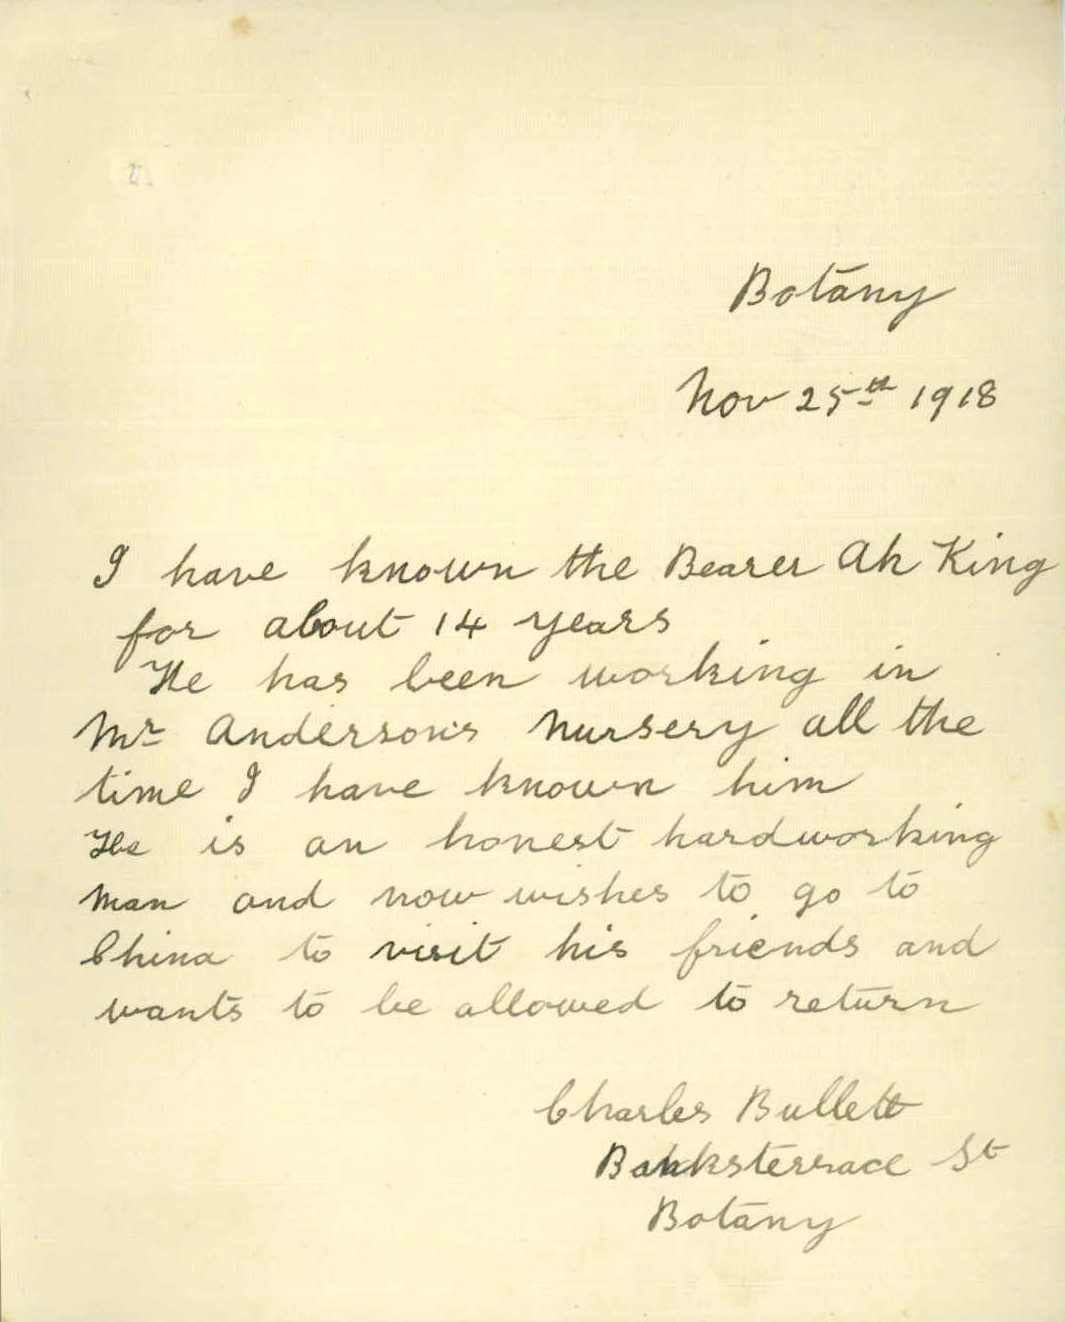 Botany
Nov 25th 1918
I have known the Bearer Ah King
for about 14 years
He has been working in
Mr Anderson's Nursery all the
time I have known him
He is an honest hardworking
man and now wishes to go to
China to visit his friends and
wants to be allowed to return
Charles Bullett
Banksterrace St
Botany